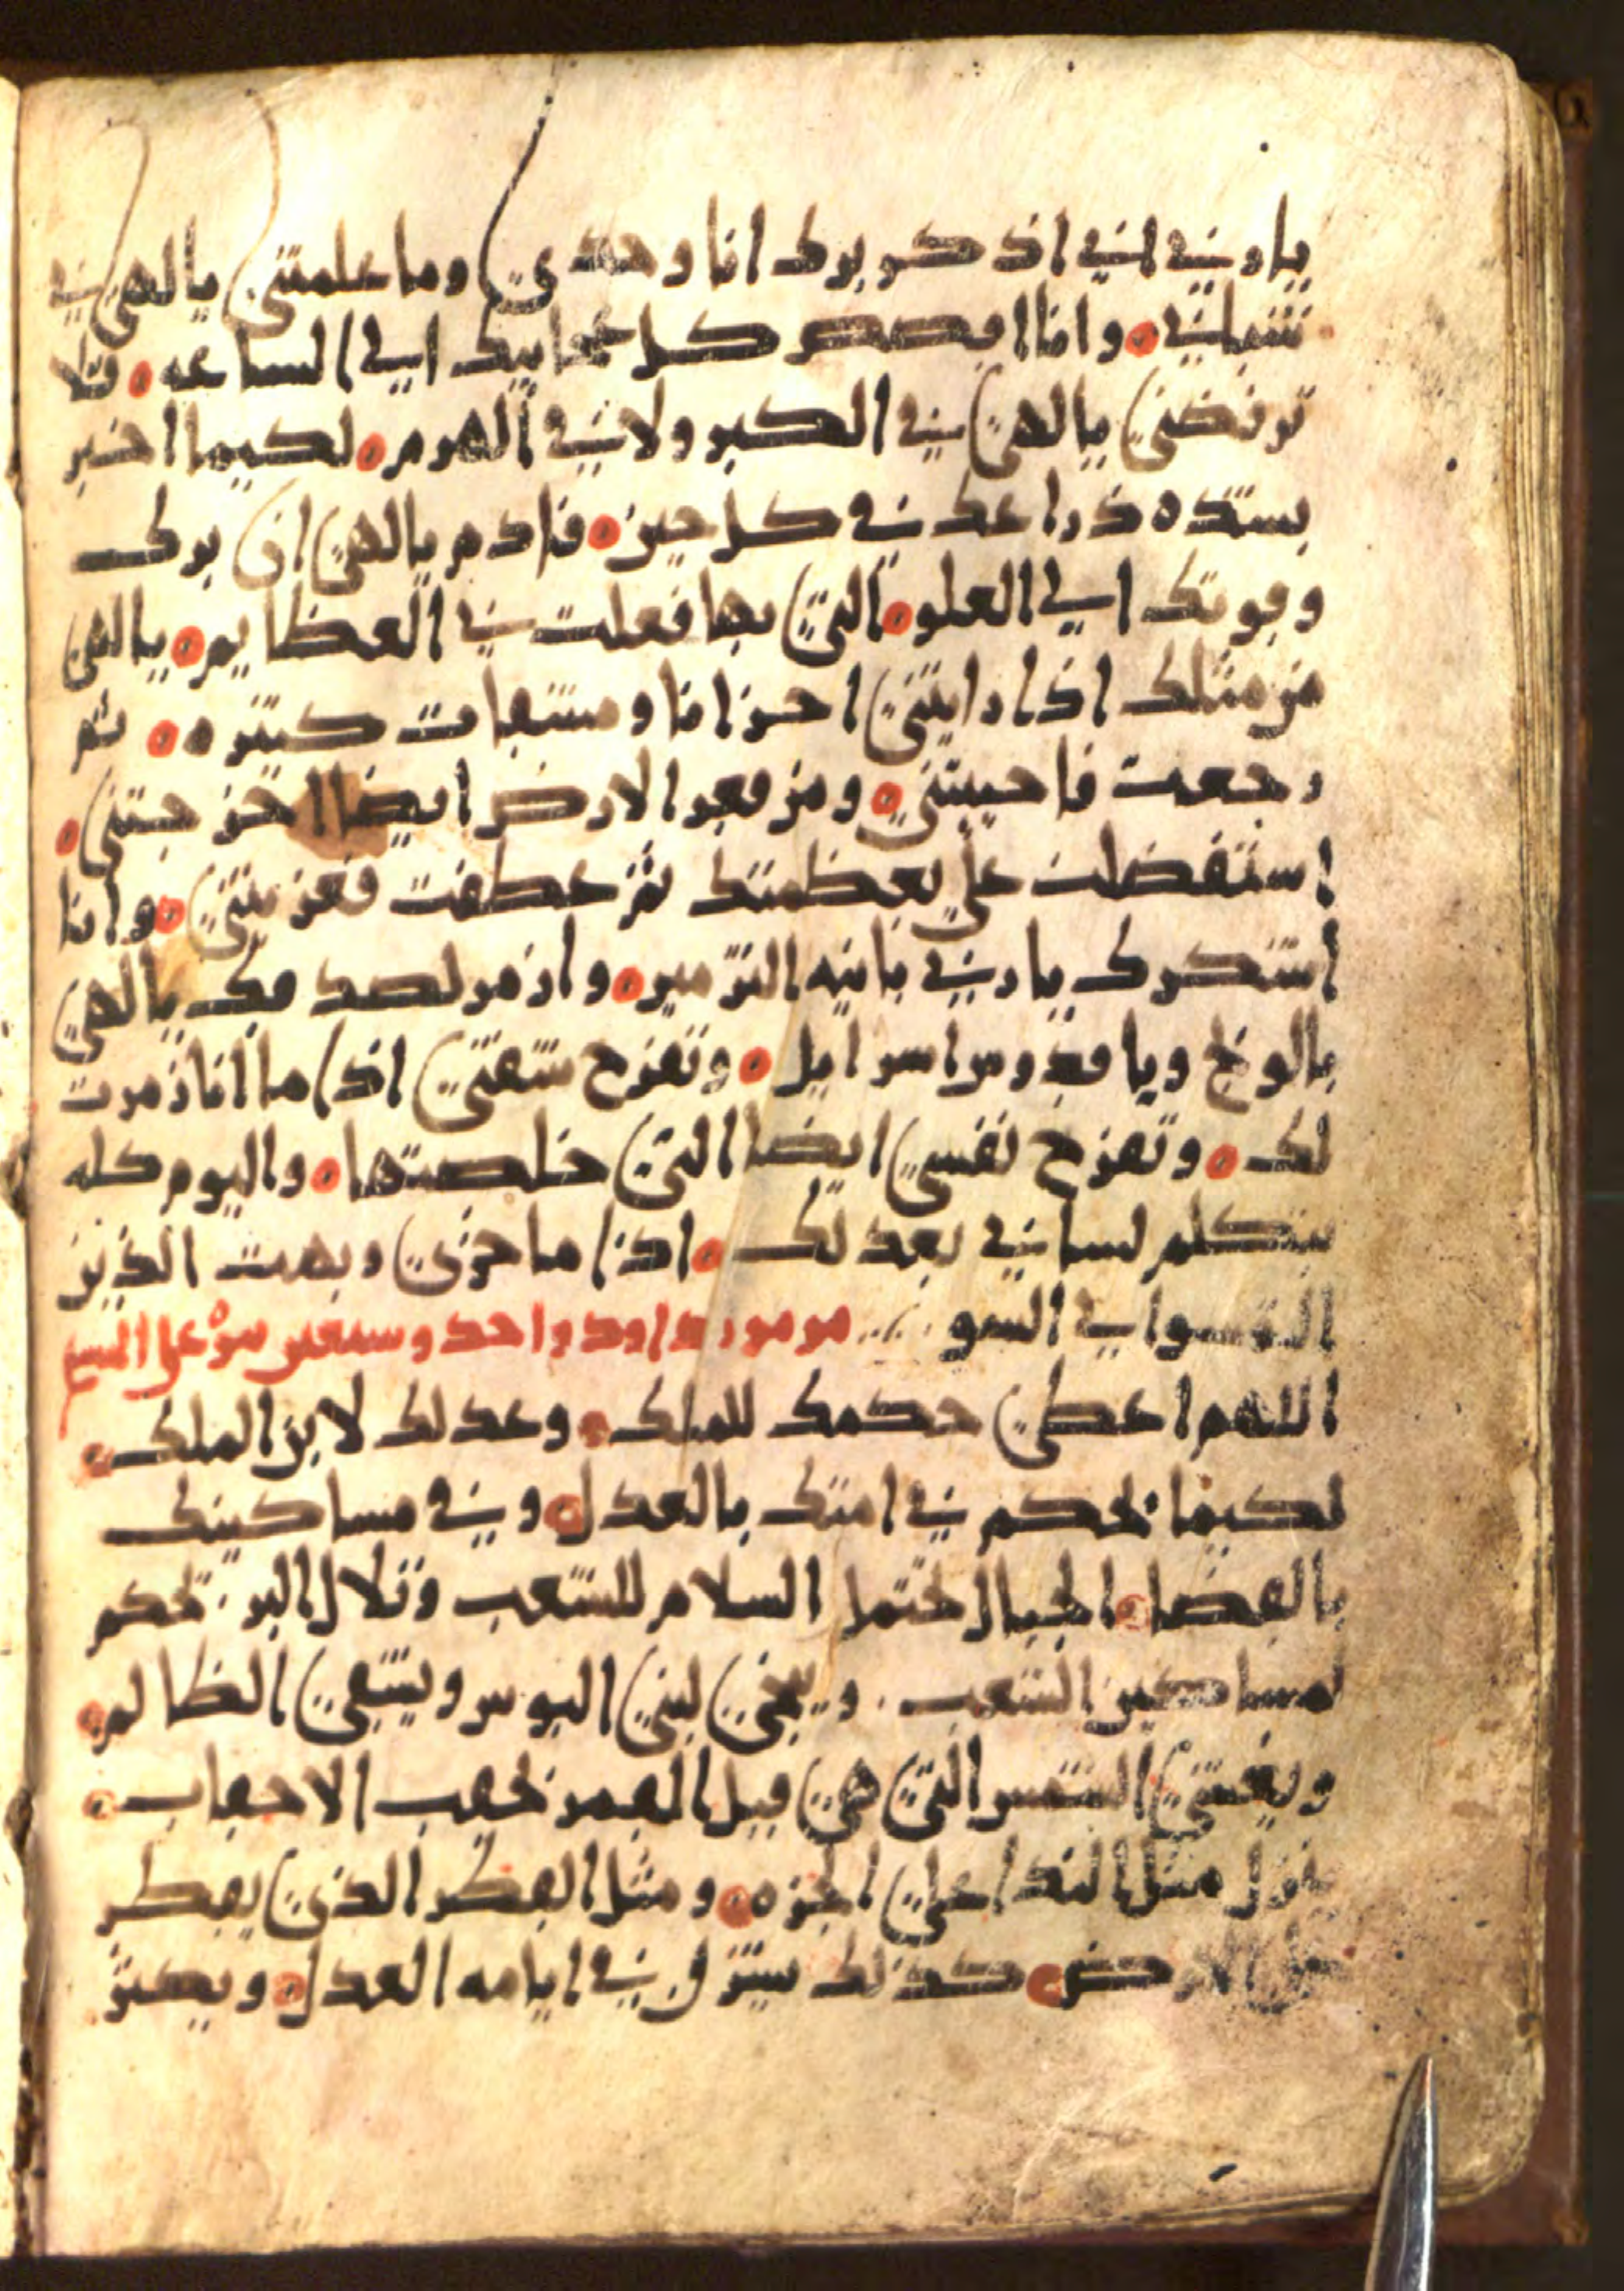 يا رب اني اذكر برك انا وحدي وما علمتني يا الهي في
شبابي وانا ابصر كل عجايبك الي الساعه فلا
ترفضني يا الهي في الكبر ولا في الهرم لكيما اخبر
بشده ذراعك في كل حين فادم يا الهي ان برك
وقوتك الي العلو التي بها فعلت في العظايم يا الهي
من مثلك اذا رايتني احزانا ومشقات كثيره ثم
رجعت فاحييتني ومن قعر الارض ايضا اخرجتني
استفضلت علي بعظمتك ثم عطفت فعزيتني وانا
اشكرك يا رب بانيه التزمير وازمر لصدقك يا الهي
بالونج ويا قدوس اسرايل وتفرح شفتي اذا ما انا زمرت
لك وتفرح نفسي ايضا التي خلصتها واليوم كله
يتكلم لساني بعدلك اذا ما خزي وبهت الذين
التمسوا بي السو مزمور داود واحد وسبعين نبوه علي المسيح
اللهم اعطي حكمك للملك وعدلك لابن الملك
لكيما يحكم في امتك بالعدل وفي مساكينك
بالقضا الجبال تحتمل السلام للشعب وتلال البر يحكم
لمساكين الشعب وينجي لبني البوس ويشقي الظالم
ويفشي الشمس التي هي قبل القمر لحقب الاحقاب
ينزل مثل الندا علي الجزه ومثل القطر الذي يقطر
علي الارض كذلك يشرق في ايامه العدل ويكثر